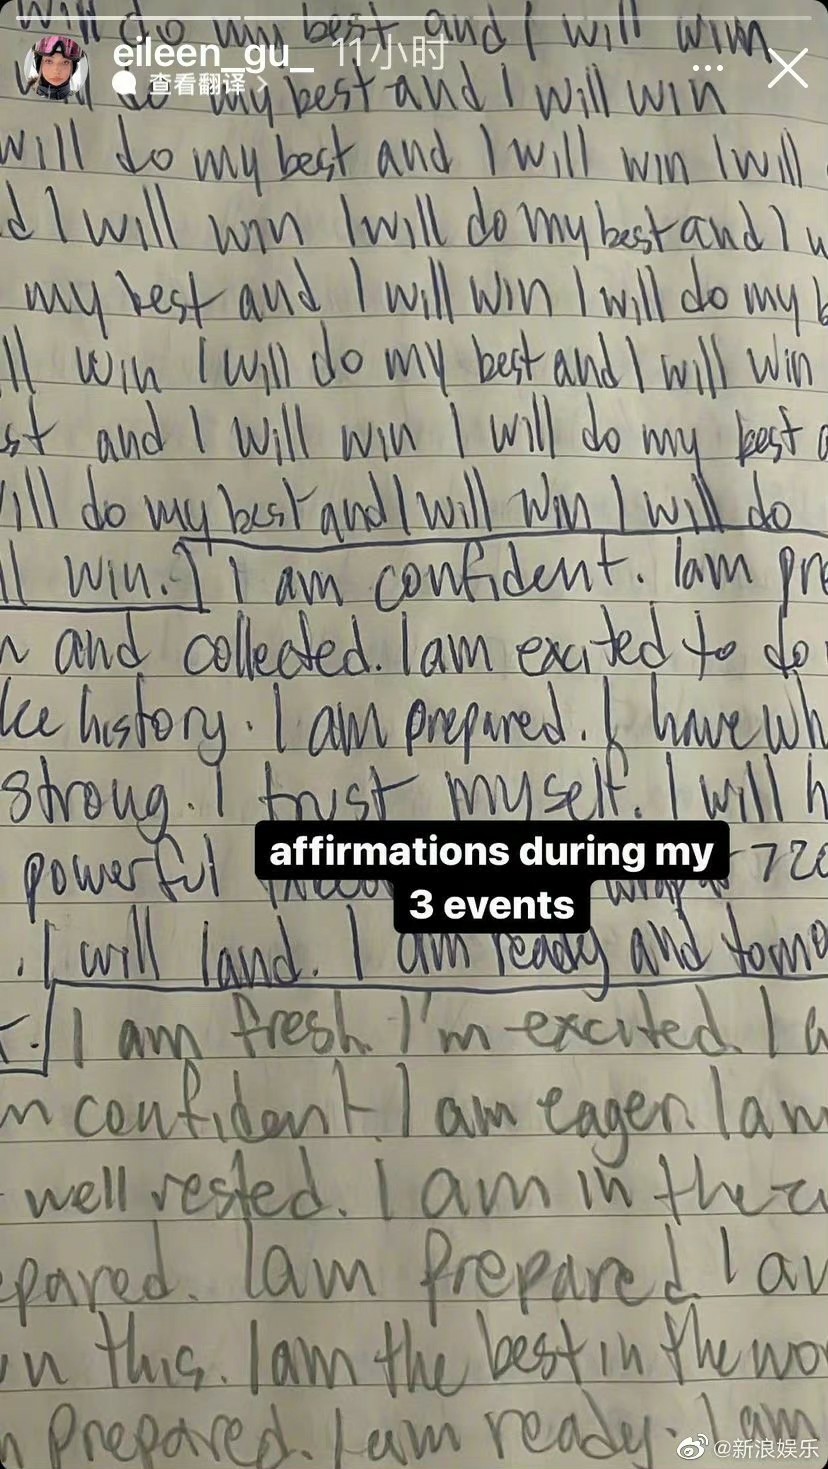 will do my best and I will win
eileen_gu_ 11小时
查看翻译
will do my best and I will win
will do my best and I will win I will
d I will win I will do my best and I w
my best and I will win I will do my b
ll win I will do my best and I will win
st and I will win I will do my best a
will do my best and I will win I will do
ll win. I am confident. I am pre
n and collected. I am excited to do
ke history. I am prepared. I have wh
strong. I trust myself. I will h
affirmations during my
powerful 720
3 events
. I will land. I am ready and tomo
I am fresh. I'm excited. I a
m confident. I am eager. I am
well rested. I am in the
epared. I am prepared. I am
in this. I am the best in the wor
m prepared. I am ready. I am
@新浪娱乐